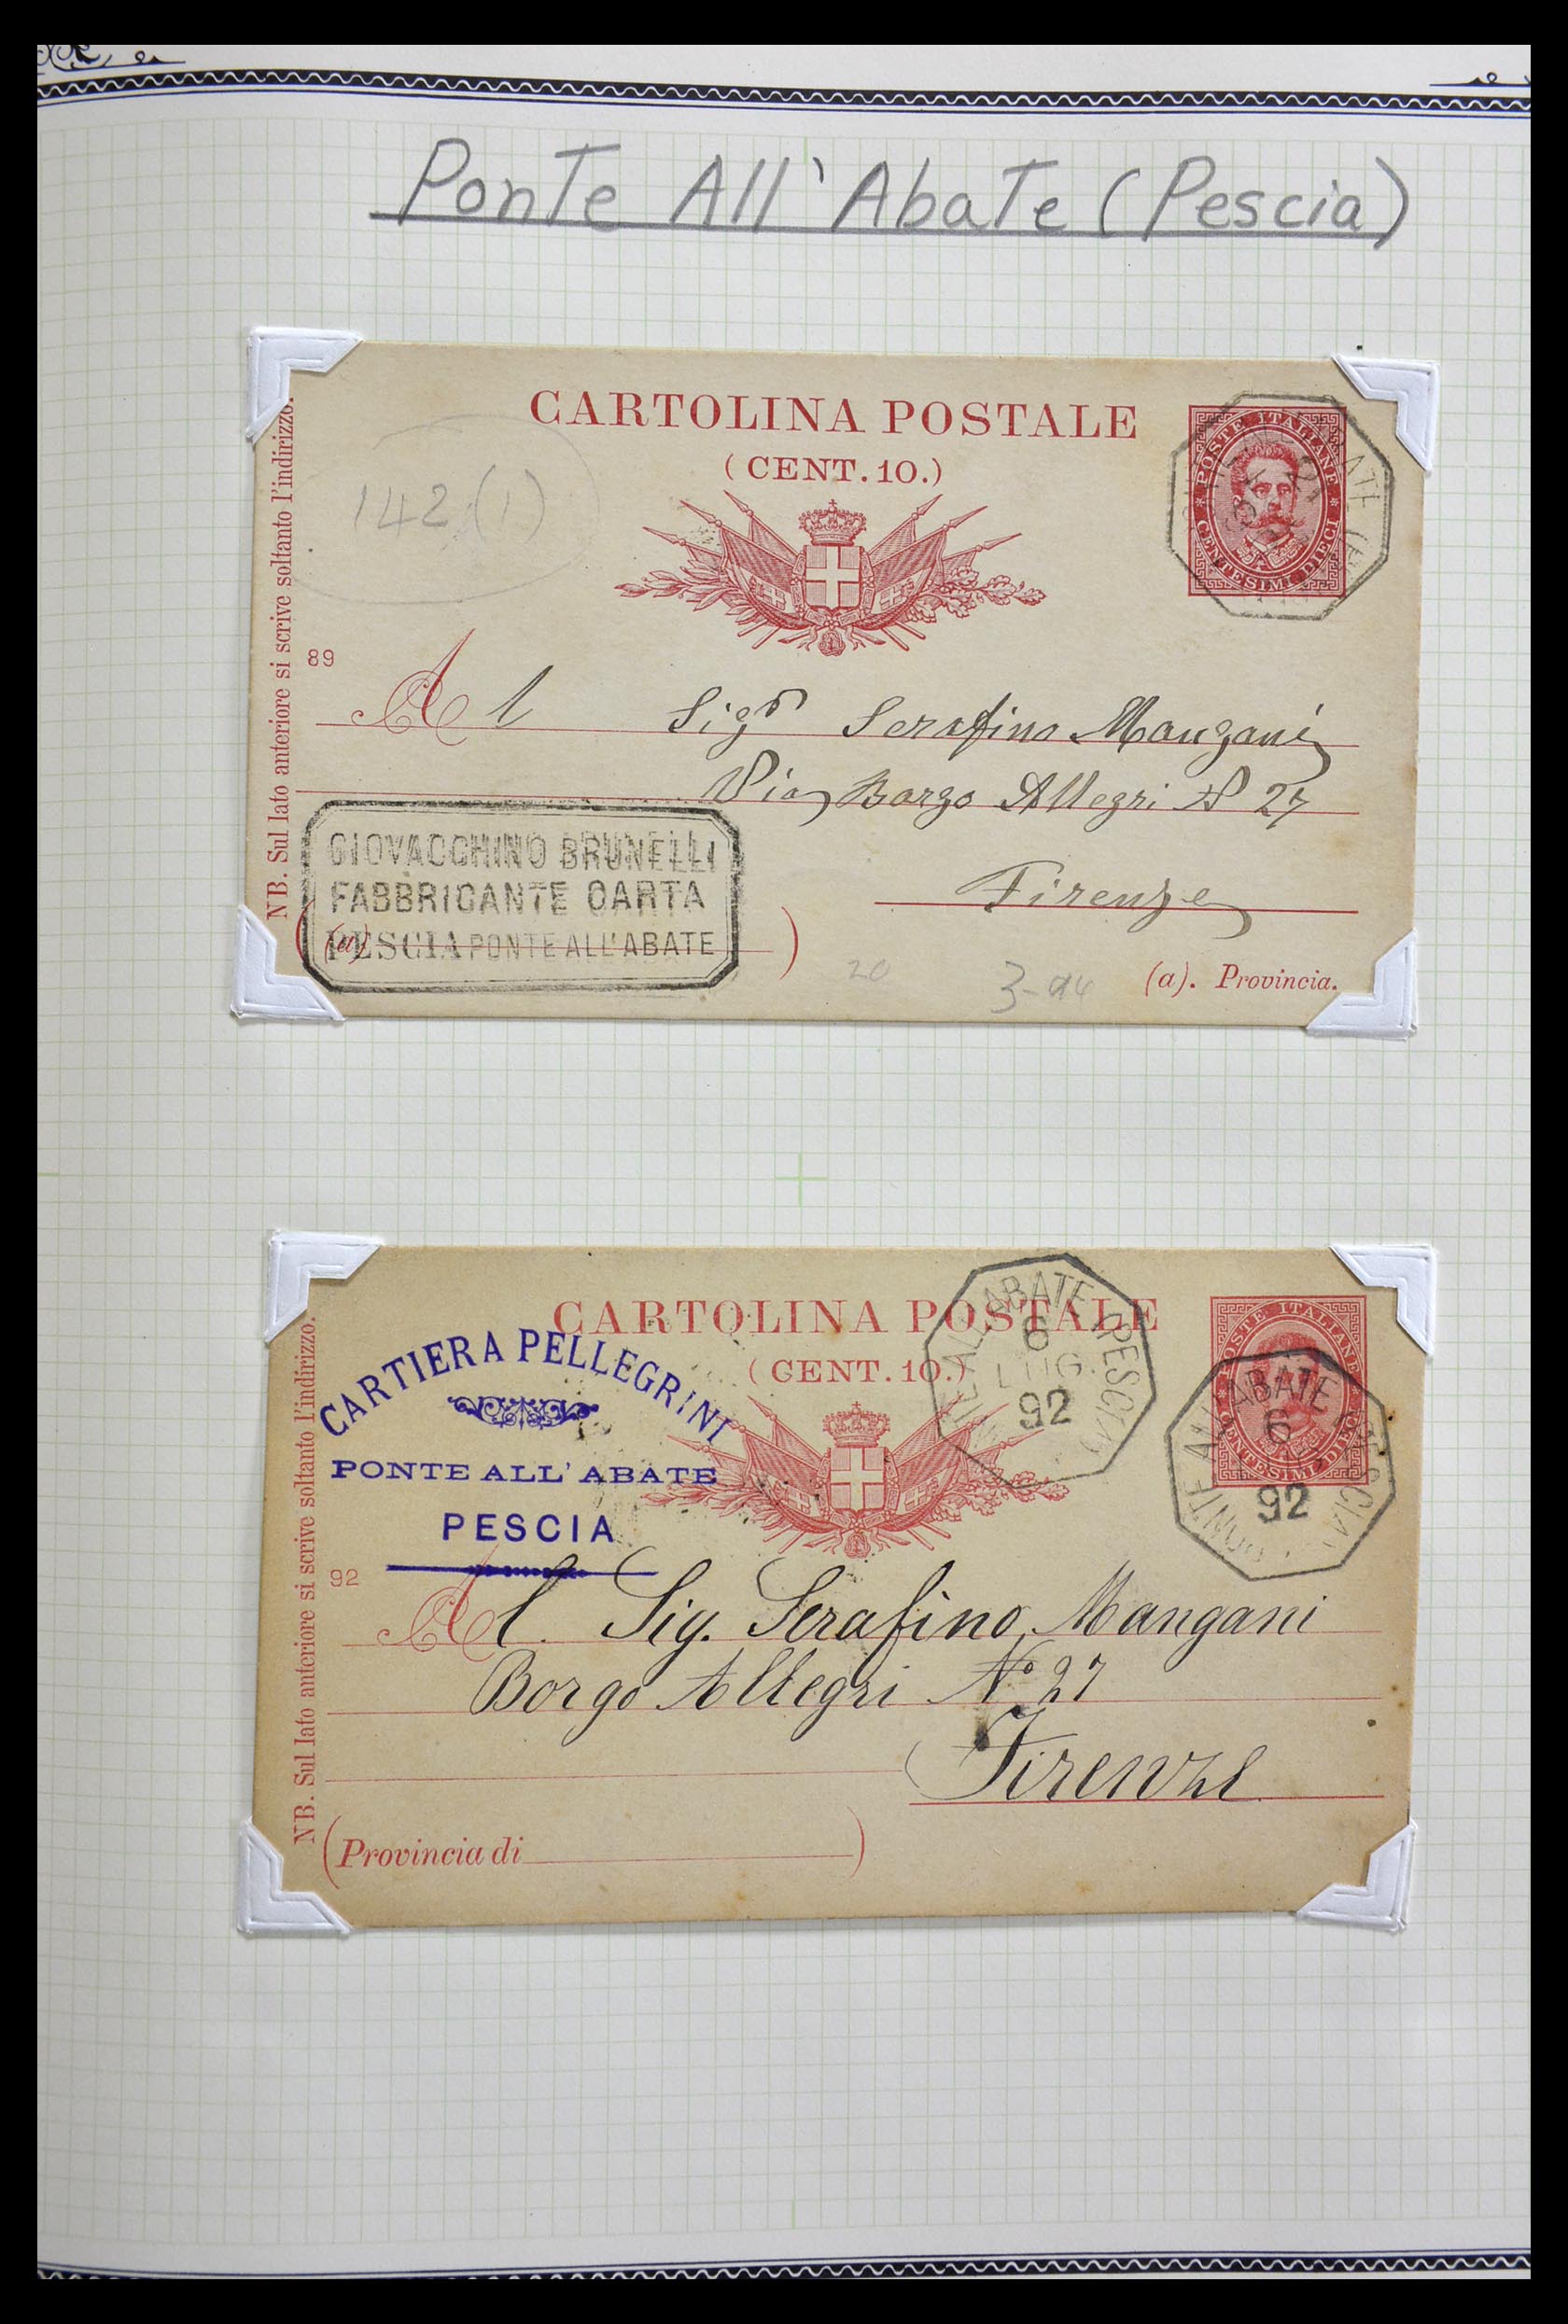 Ponte All'Abate (Pescia)
CARTOLINA POSTALE
(CENT. 10.)
POSTE ITALIANE
CENTESIMI DIECI
142 (1)
NB. Sul lato anteriore si scrive soltanto l'indirizzo.
89
Al Sigr Serafino Mangani
Via Borgo Allegri N 27
Firenze
GIOVACCHINO BRUNELLI
FABBRICANTE CARTA
PESCIA PONTE ALL'ABATE
(a)
20
3-94
(a). Provincia.
CARTOLINA POSTALE
(CENT. 10.)
ALL'ABATE (PESCIA)
6
LUG.
92
POSTE ITALIANE
CENTESIMI DIECI
PONTE ALL'ABATE PESCIA
6
92
CARTIERA PELLEGRINI
PONTE ALL'ABATE
PESCIA
NB. Sul lato anteriore si scrive soltanto l'indirizzo.
92
Al. Sig. Serafino Mangani
Borgo Allegri No 27
Firenze
(Provincia di )